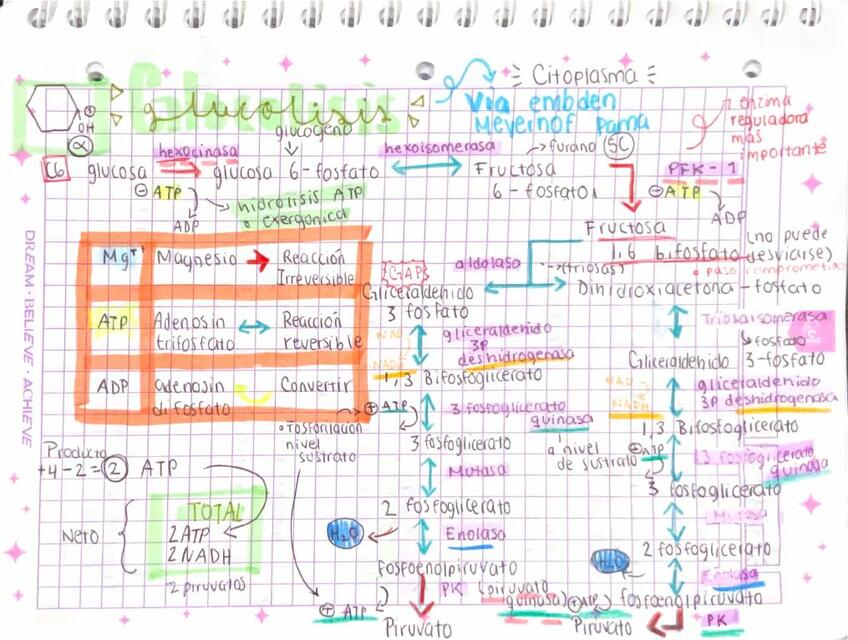 Glucolisis
glucolisis
Via embden
Meyernof parna
Citoplasma
1 enzima
reguladora
más
importante
OH
α
C6
glucosa
hexocinasa
glucogeno
glucosa 6-fosfato
hexoisomerasa
furano 5C
Fructosa
6-fosfato
PFK-1
⊖ ATP
ADP
hidrolisis ATP
exergonica
⊖ ATP
ADP
Fructosa
1,6 bifosfato
(no puede
desviarse)
paso comprometido
Mg++
Magnesio
Reacción
Irreversible
ATP
Adenosin
trifosfato
Reacción
reversible
ADP
adenosin
difosfato
Convertir
GAP
aldolasa
(triosas)
Gliceraldehido
3 fosfato
Dihidroxiacetona-fosfato
Triosaisomerasa
fosfato
Gliceraldehido 3-fosfato
NAD
NADH
gliceraldehido
3P
deshidrogenasa
NAD
NADH
gliceraldehido
3P deshidrogenasa
1,3 Bifosfoglicerato
1,3 Bifosfoglicerato
⊕ ATP
3 fosfoglicerato
quinasa
fosforilación
nivel
sustrato
a nivel
de sustrato
⊕ATP
1,3 fosfoglicerato
quinasa
3 fosfoglicerato
3 fosfoglicerato
Mutasa
Mutasa
2 fosfoglicerato
2 fosfoglicerato
H2O
Enolasa
H2O
Enolasa
fosfoenolpiruvato
fosfoenolpiruvato
⊕ ATP
PK (piruvato
quinasa)
⊕ATP
PK
Piruvato
Piruvato
Producto
+4-2=2 ATP
Neto
TOTAL
2ATP
2NADH
2 piruvatos
DREAM · BELIEVE · ACHIEVE